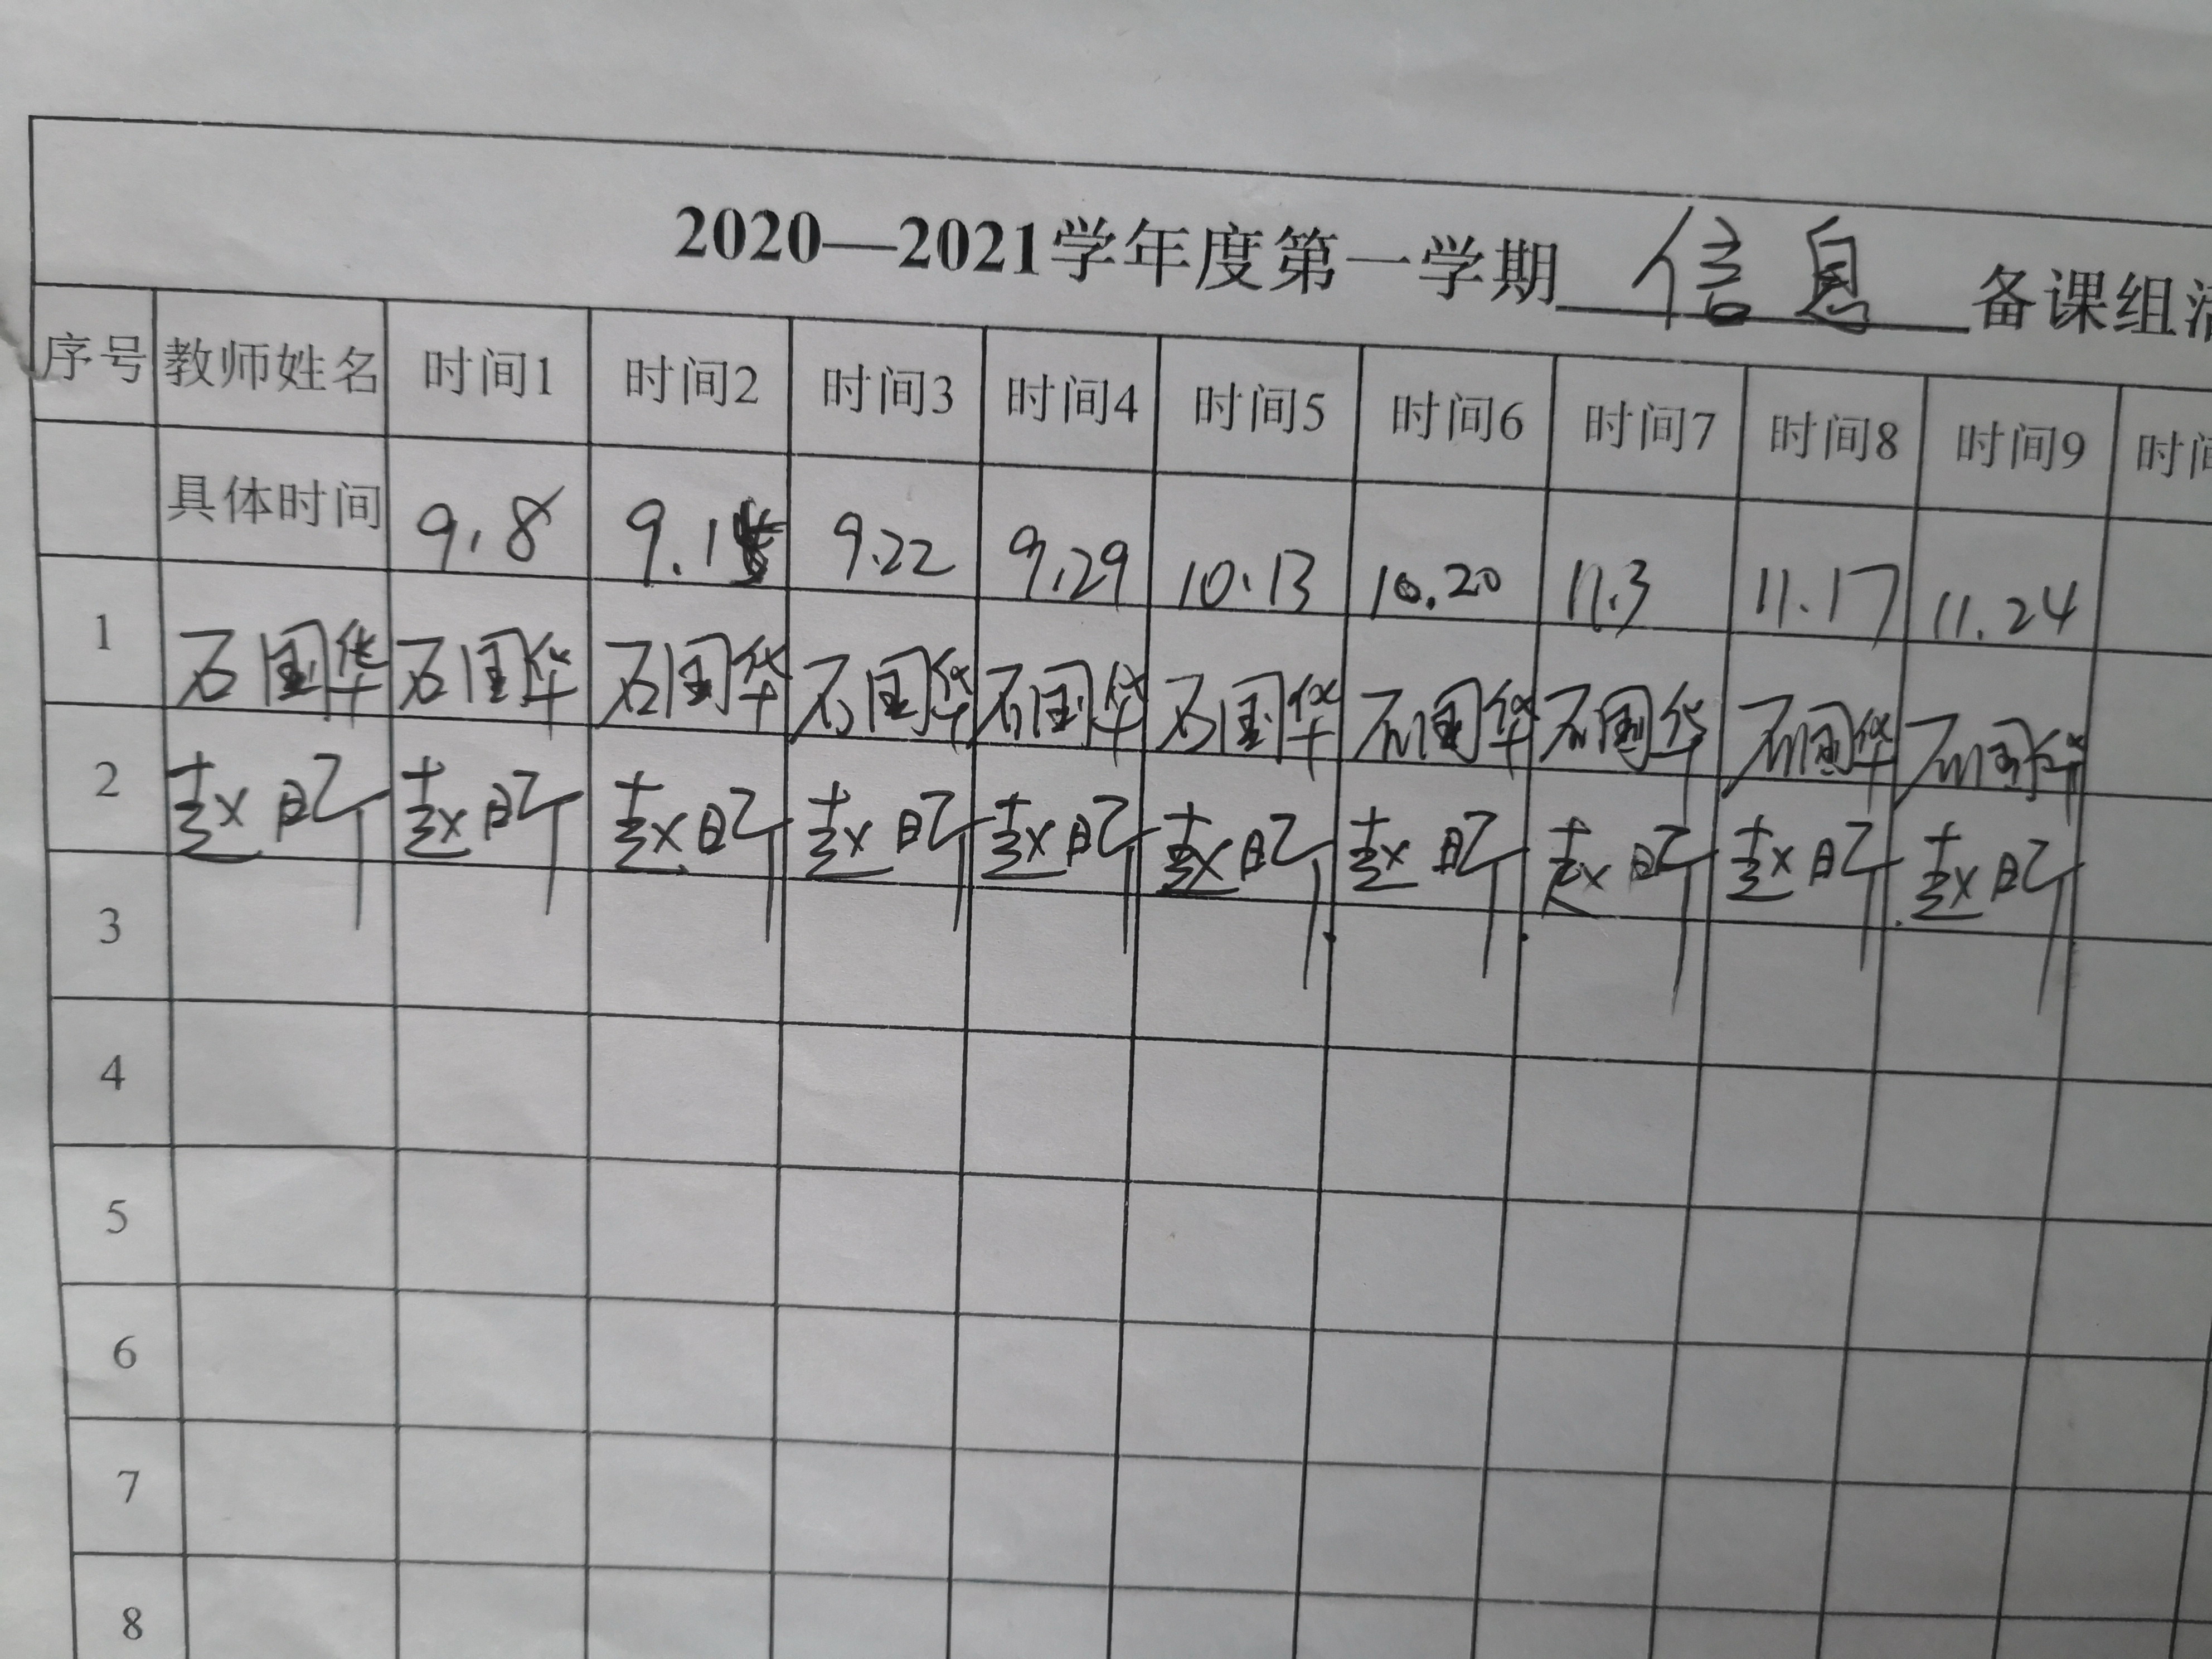 2020—2021学年度第一学期 信息 备课组
序号 教师姓名 时间1 时间2 时间3 时间4 时间5 时间6 时间7 时间8 时间9 时间
具体时间 9.8 9.22 9.29 10.13 10.20 11.3 11.17 11.24
1 石国华 石国华 石国华 石国华 石国华 石国华 石国华 石国华 石国华 石国华
2 赵 赵 赵 赵 赵 赵 赵 赵 赵 赵
3
4
5
6
7
8